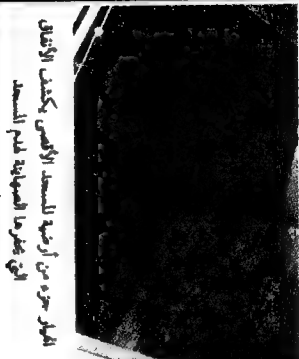 انهيار جزء من أرضية المسجد الأقصى يكشف الأنفاق
التي يحفرها الصهاينة لهدم المسجد